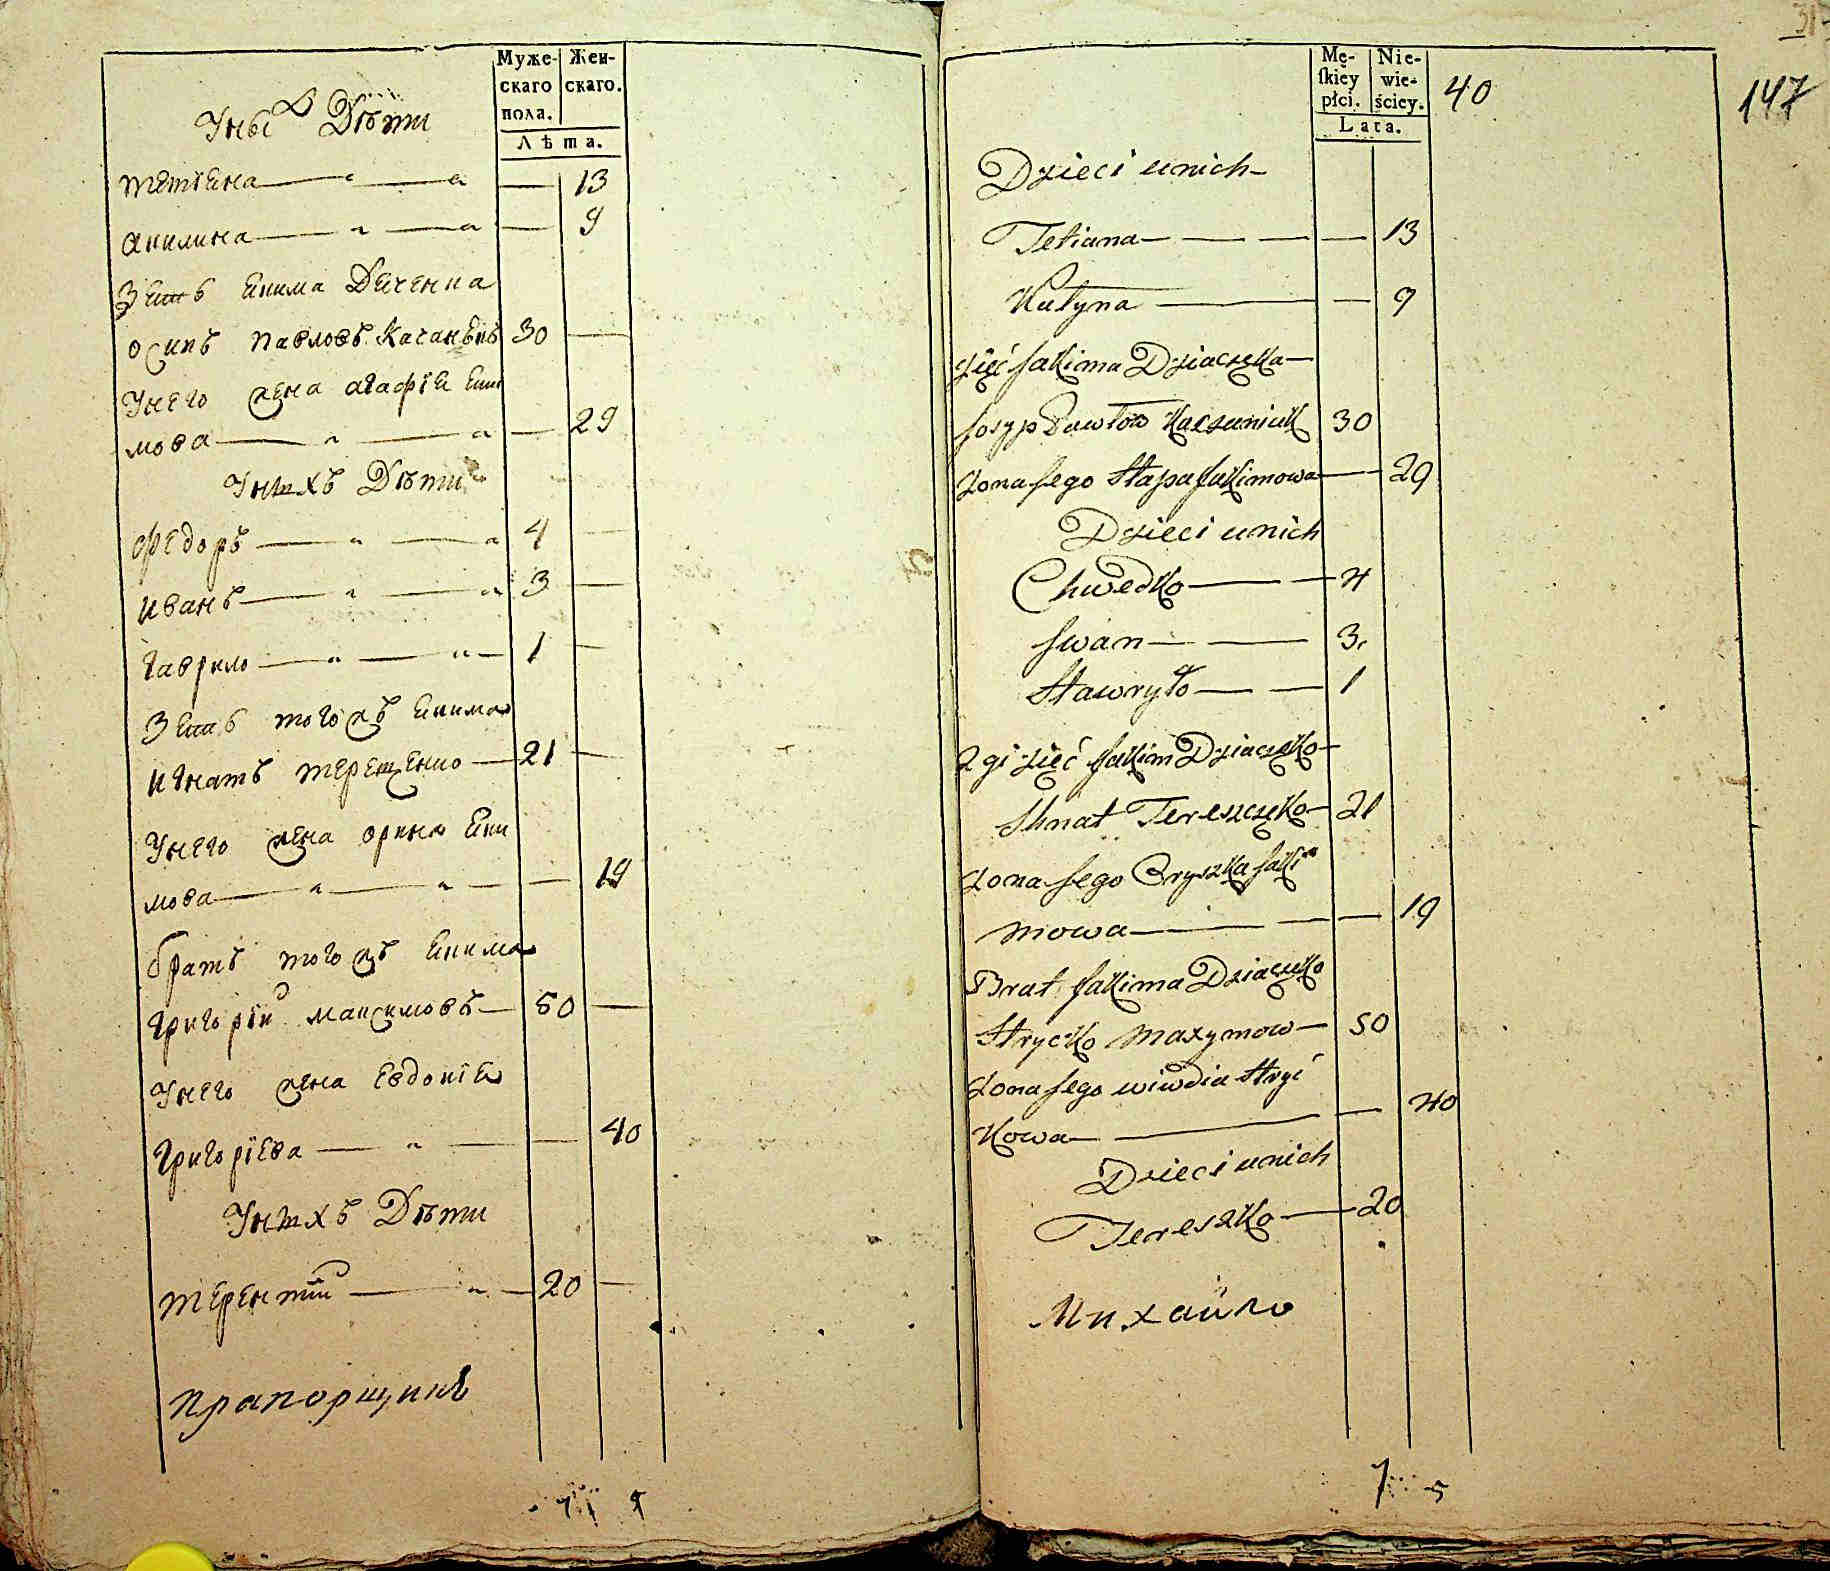 Муже-
скаго
пола.
Жен-
скаго.
Лѣта.
Дѣти
Тетіена — " — " — 13
Акилина — " — " — 9
Зеть Екима Деченка
Осипъ Павловъ Качанѣкъ 30 —
Унего жена Агафіе Еки
мова — " — " — 29
Унихъ Дѣти
Федоръ — " — " 4 —
Иванъ — " — " 3 —
Гаврило — " — " 1 —
Зеть тогожъ Екима
Игнатъ Терещенко — 21 —
Унего жена Орина Еки
мова — " — " — 19
Братъ тогожъ Екима
Григорій Максимовъ — 50 —
Унего жена Евдокіе
Григоріева — " — 40
Унихъ Дѣти
Терентій — " — 20 —
Прапорщикъ
7 5
Mę-
skiey
płci.
Nie-
wie-
ściey.
Lata.
40
147
Dzieci unich
Tetiana — — — 13
Kulyna — — 9
Zięć Jakima Dziaczka —
Josyp Pawłow Kaczaniuk 30
Zona Jego Hapa Jakimowa — 29
Dzieci unich
Chwedko — — 4
Iwan — — 3
Hawryło — — 1
2gi Zięć Jakim Dziaczko —
Ihnat Tereszczko — 21
Zona Jego Oryszka Jaki
mowa — — — 19
Brat Jakima Dziaczko
Hrycko Maxymow — 50
Zona Jego Wiwdia Hryć
kowa — — — 40
Dzieci unich
Tereszko — 20
Михайло
7 5